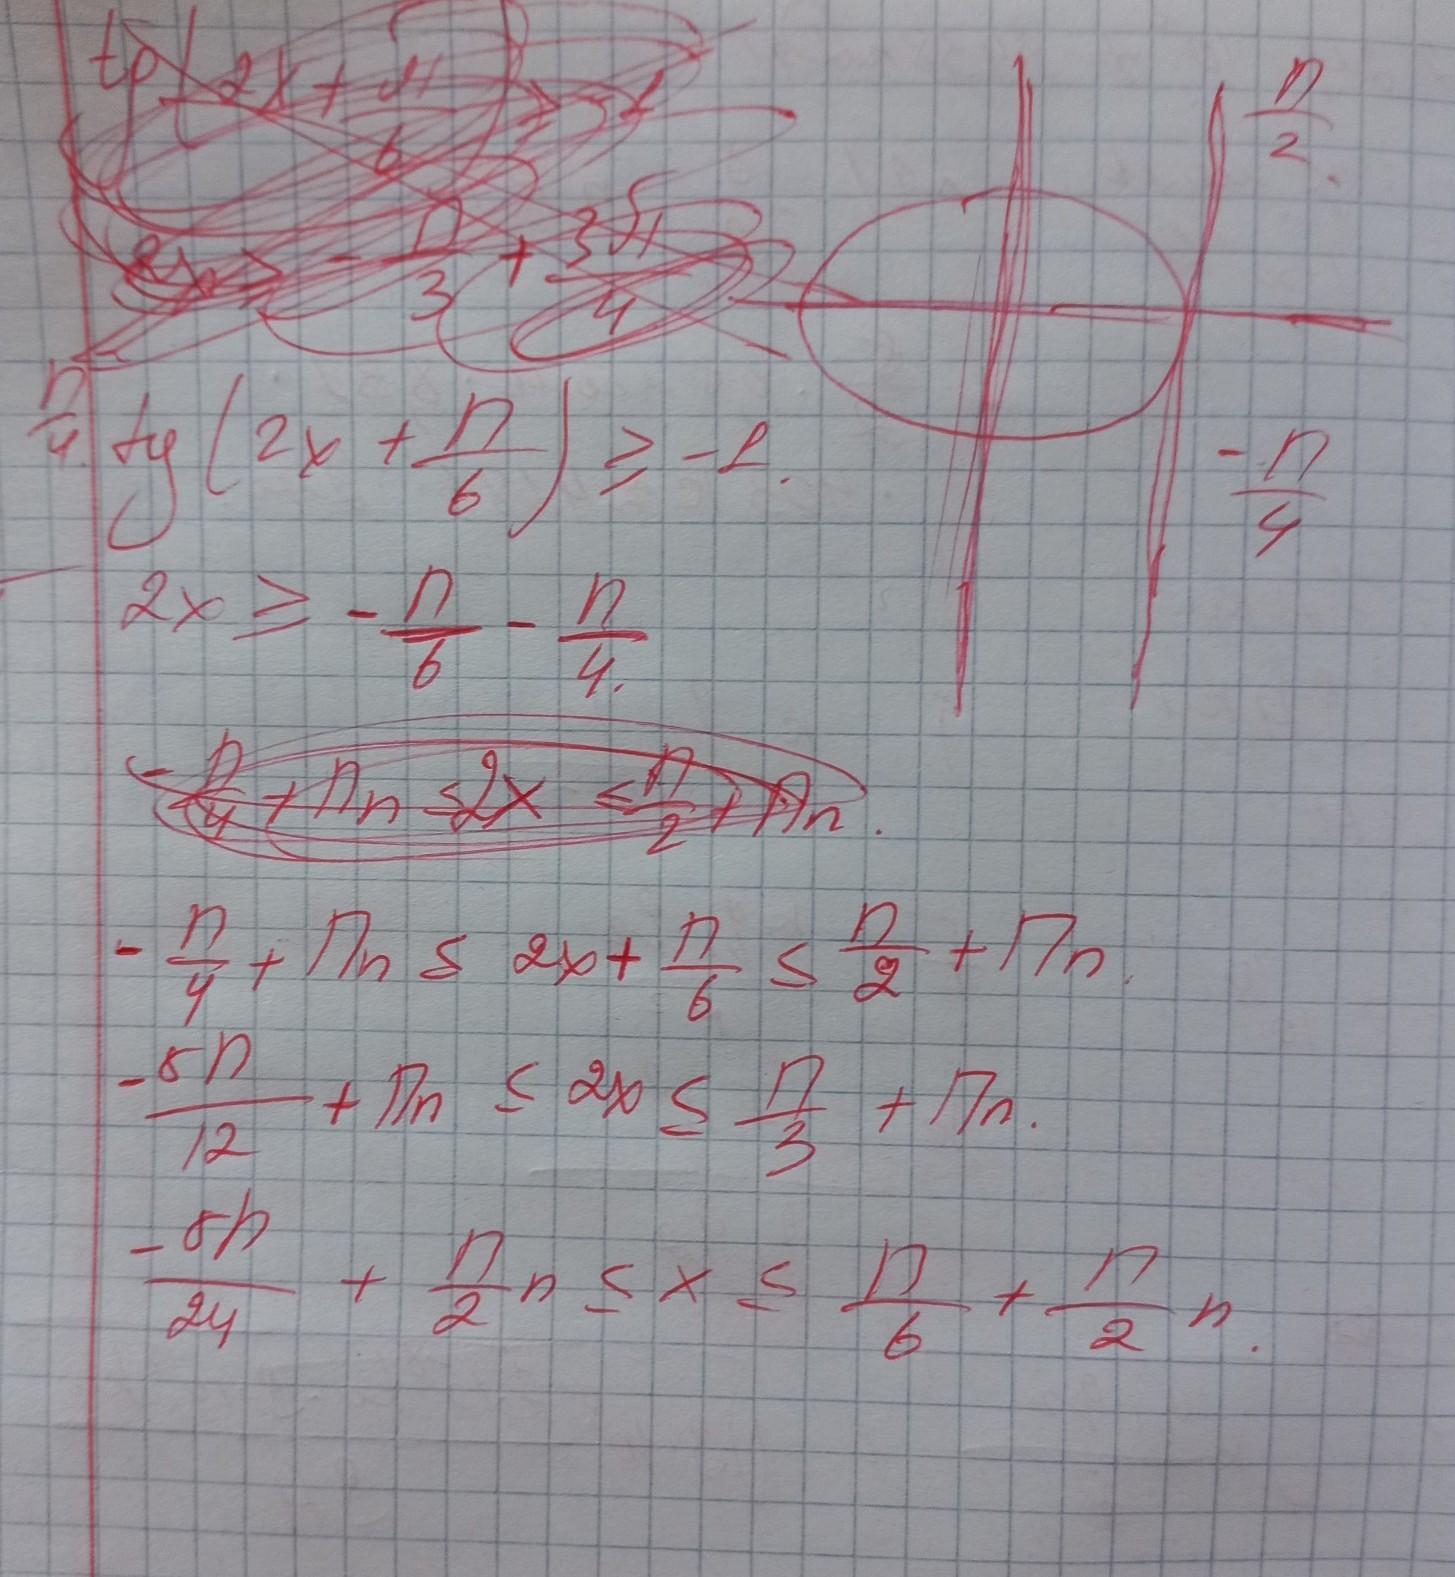 tg(2x + π/6) ≥ -1.
π/2.
-π/4
π/4.
2x ≥ -π/6 - π/4.
-π/4 + πn ≤ 2x ≤ π/2 + πn.
-π/4 + πn ≤ 2x + π/6 ≤ π/2 + πn.
-5π/12 + πn ≤ 2x ≤ π/3 + πn.
-5π/24 + π/2 n ≤ x ≤ π/6 + π/2 n.